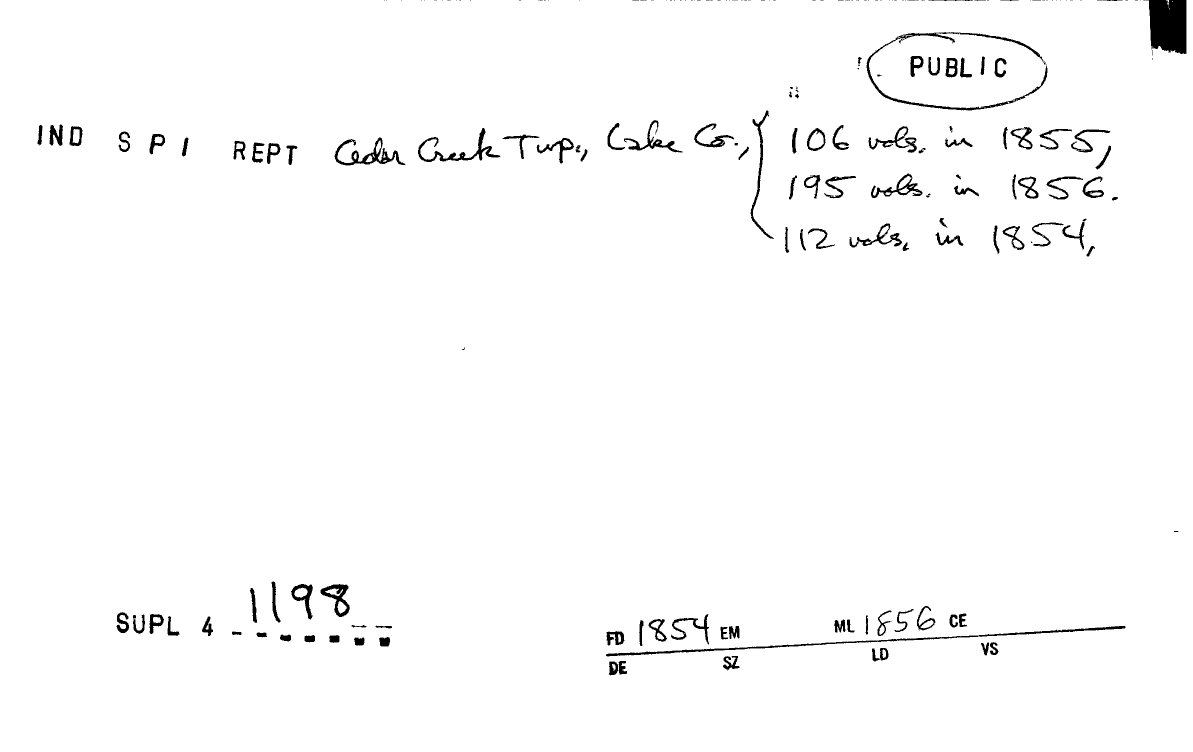 PUBLIC
IND S P I REPT Cedar Creek Twp., Lake Co., 106 vols. in 1855,
195 vols. in 1856.
112 vols. in 1854,
SUPL 4 1198
FD 1854 EM ML 1856 CE
DE SZ LD VS